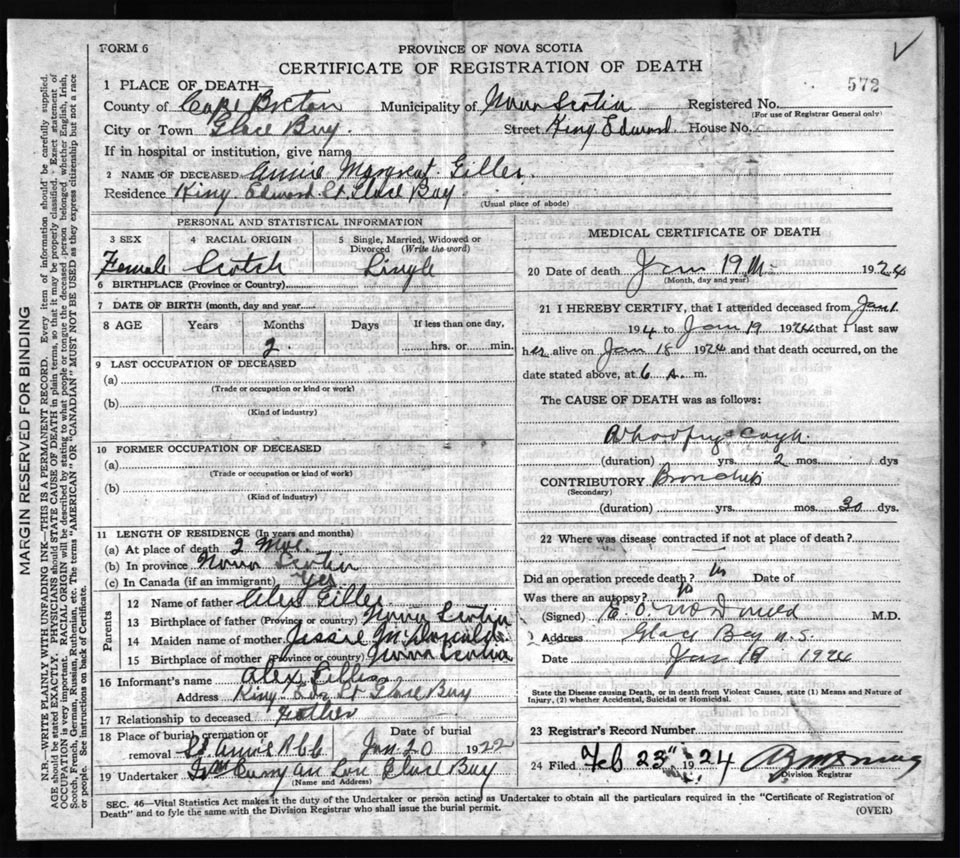 FORM 6
PROVINCE OF NOVA SCOTIA
CERTIFICATE OF REGISTRATION OF DEATH
572
1 PLACE OF DEATH—
County of Cape Breton Municipality of Nova Scotia Registered No.
(For use of Registrar General only)
City or Town Glace Bay. Street King Edward House No.
If in hospital or institution, give name
2 NAME OF DECEASED Annie Margreat Gillis
Residence King Edward St. Glace Bay
(Usual place of abode)
PERSONAL AND STATISTICAL INFORMATION
3 SEX 4 RACIAL ORIGIN 5 Single, Married, Widowed or Divorced (Write the word)
Female Scotch Single
6 BIRTHPLACE (Province or Country)
7 DATE OF BIRTH (month, day and year)
8 AGE Years Months Days If less than one day,
2 hrs. or min.
9 LAST OCCUPATION OF DECEASED
(a)
(Trade or occupation or kind or work)
(b)
(Kind of industry)
10 FORMER OCCUPATION OF DECEASED
(a)
(Trade or occupation or kind of work)
(b)
(Kind of industry)
11 LENGTH OF RESIDENCE (In years and months)
(a) At place of death 2 Mos.
(b) In province Nova Scotia
(c) In Canada (if an immigrant) Yes
Parents
12 Name of father Alex Gillis
13 Birthplace of father (Province or country) Nova Scotia
14 Maiden name of mother Jessie McDonald.
15 Birthplace of mother (Province or country) Nova Scotia
16 Informant's name Alex Gillis
Address King Ed St Glace Bay
17 Relationship to deceased Father
18 Place of burial, cremation or removal St Anns Date of burial Jan 20 1922
19 Undertaker Glace Bay
(Name and Address)
MEDICAL CERTIFICATE OF DEATH
20 Date of death Jan 19 1924
(Month, day and year)
21 I HEREBY CERTIFY, that I attended deceased from Jan 1
1924 to Jan 19 1924 that I last saw
her alive on Jan 18 1924 and that death occurred, on the
date stated above, at 6 A. m.
The CAUSE OF DEATH was as follows:
Whooping Cough.
(duration) yrs. 2 mos. dys
CONTRIBUTORY Bronchitis
(Secondary)
(duration) yrs. mos. dys.
22 Where was disease contracted if not at place of death?
Did an operation precede death? No Date of
Was there an autopsy? No
(Signed) McDonald M.D.
Address Glace Bay N.S.
Date Jan 19 1924
State the Disease causing Death, or in death from Violent Causes, state (1) Means and Nature of
Injury, (2) whether Accidental, Suicidal or Homicidal.
23 Registrar's Record Number
24 Filed Feb 23" 1924
Division Registrar
SEC. 46—Vital Statistics Act makes it the duty of the Undertaker or person acting as Undertaker to obtain all the particulars required in the "Certificate of Registration of
Death" and to fyle the same with the Division Registrar who shall issue the burial permit.
(OVER)
MARGIN RESERVED FOR BINDING
N.B.—WRITE PLAINLY WITH UNFADING INK—THIS IS A PERMANENT RECORD. Every item of information should be carefully supplied.
AGE should be stated EXACTLY. PHYSICIANS should STATE CAUSE OF DEATH in plain terms, so that it may be properly classified. Exact statement of
OCCUPATION is very important. RACIAL ORIGIN will be described by stating to what people or tongue the deceased person belonged whether English, Irish,
Scotch, French, German, Russian, Ruthenian, etc. The terms "AMERICAN" or "CANADIAN" MUST NOT BE USED as they express citizenship but not a race
or people. See instructions on back of Certificate.